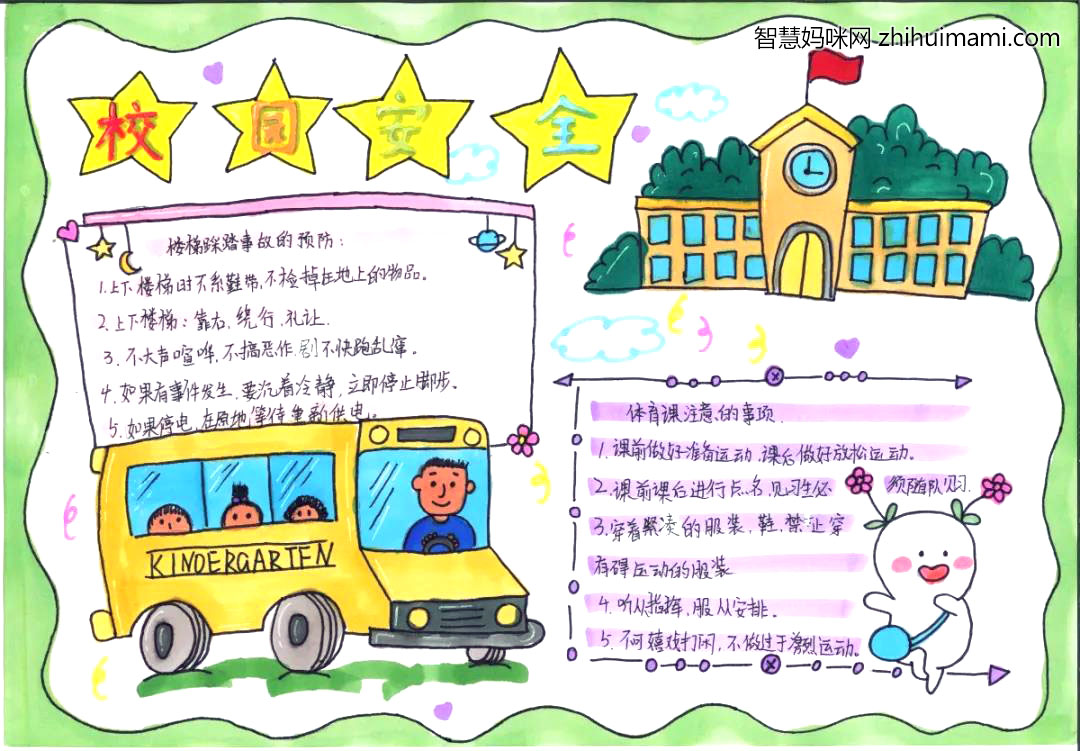 智慧妈咪网-zhihuimami.com
校园安全
楼梯踩踏事故的预防:
1.上下楼梯时不系鞋带,不捡掉在地上的物品。
2.上下楼梯:靠右、绕行、礼让.
3.不大声喧哗,不搞恶作剧不快跑乱窜。
4.如果有事件发生,要沉着冷静,立即停止脚步。
5.如果停电,在原地等待重新供电。
KINDERGARTEN
体育课注意的事项.
1.课前做好准备运动,课后做好放松运动。
2.课前课后进行点名,见习生必须随队见习.
3.穿着紧凑的服装,鞋,禁止穿
有碍运动的服装
4.听从指挥,服从安排。
5.不可嬉戏打闹,不做过于激烈运动。